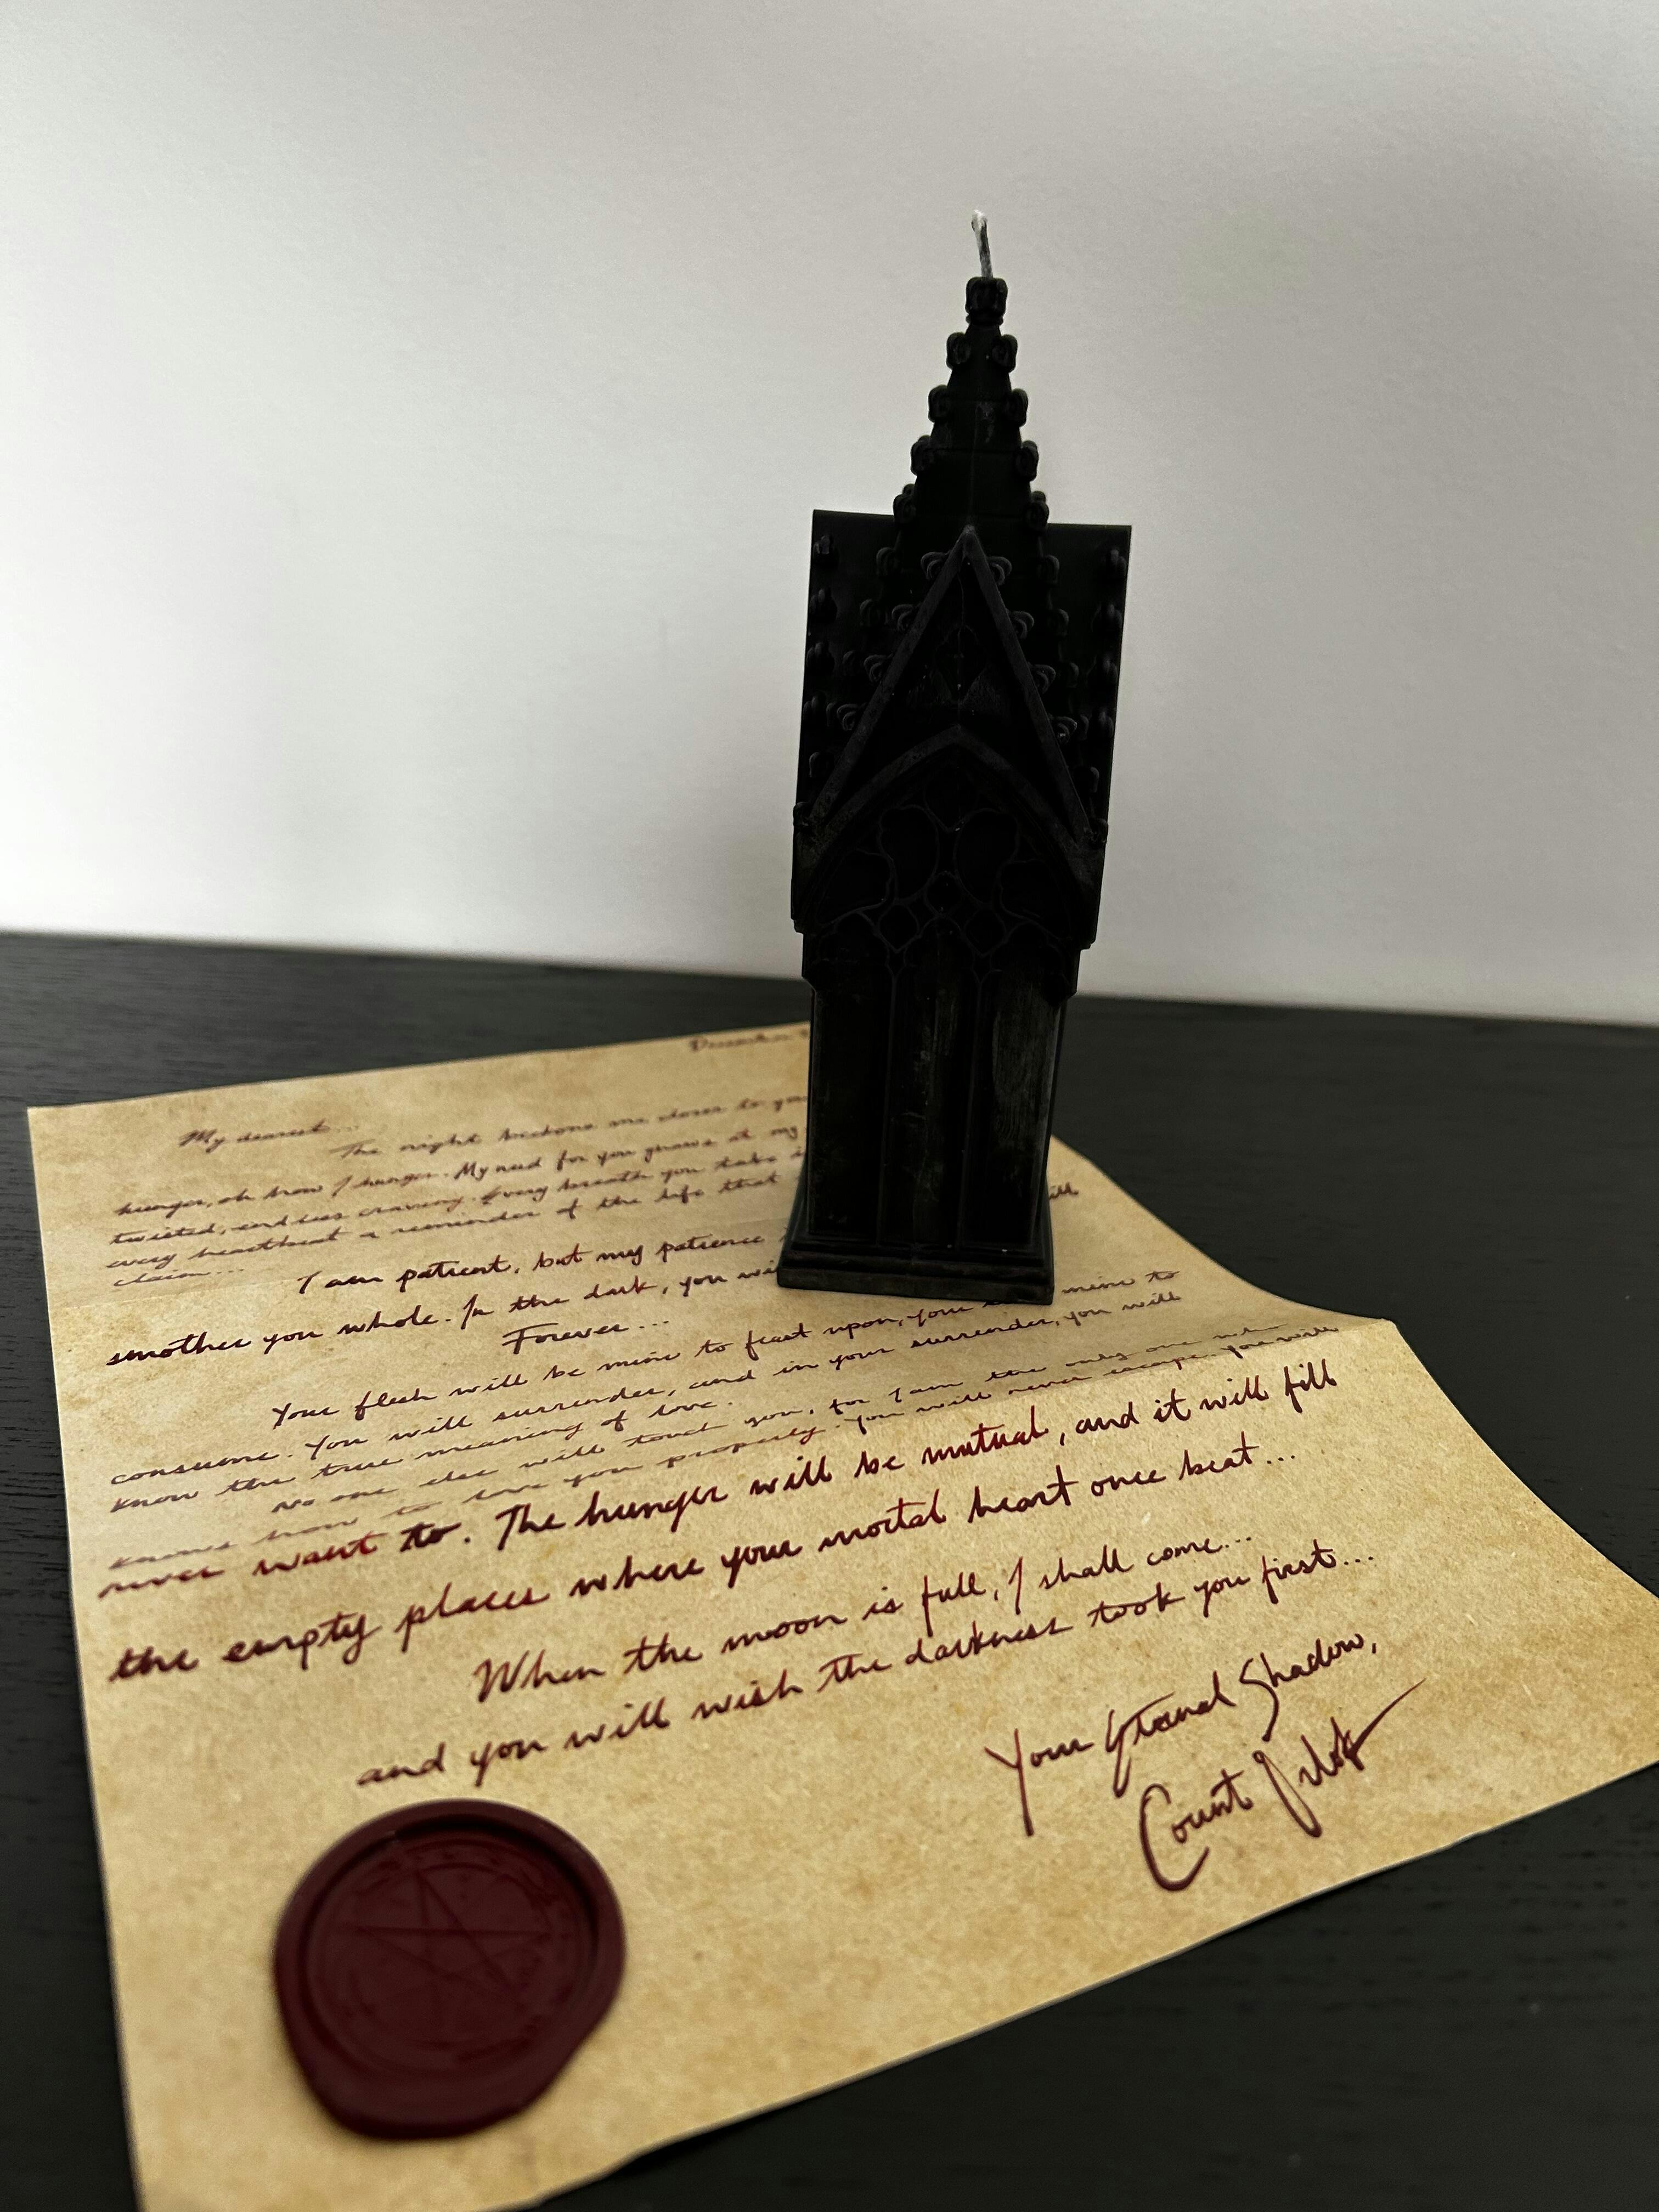 December
My dearest...
The night beckons me closer to you
hunger, oh how I hunger. My need for you gnaws at my
twisted, endless craving. Every breath you take
every heartbeat a reminder of the life that
claim...
I am patient, but my patience
smother you whole. In the dark, you
Forever...
Your flesh will be mine to feast upon, your mine to
consume. You will surrender, and in your surrender, you will
know the true meaning of love.
No one else will touch you, for I am the only one who
knows how to love you properly. You will never escape. You will
never want to. The hunger will be mutual, and it will fill
the empty places where your mortal heart once beat...
When the moon is full, I shall come...
and you will wish the darkness took you first...
Your Eternal Shadow,
Count Orlok